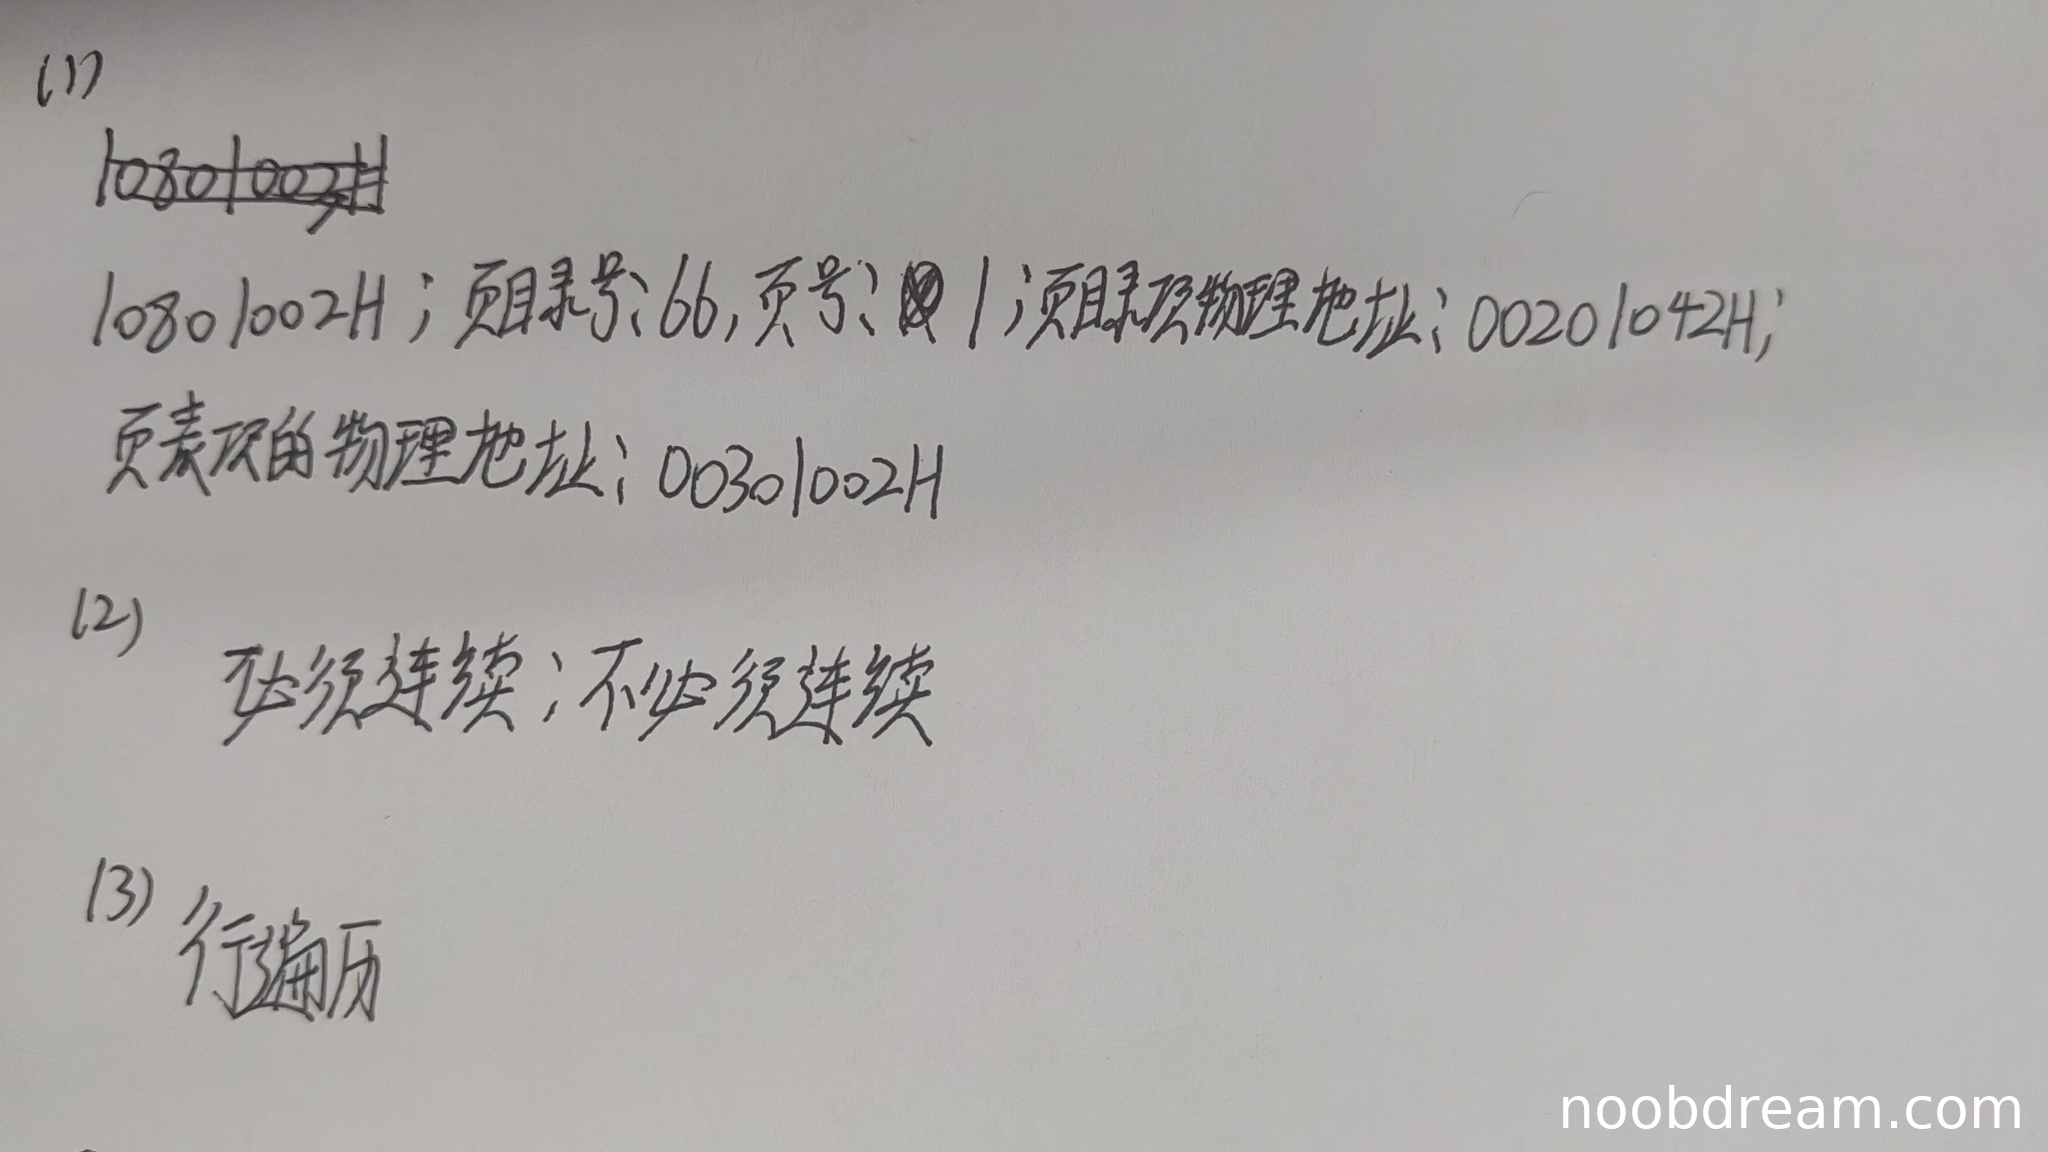 (1)
10801002H
10801002H；页目录号：66，页号：1；页目录项物理地址：00201042H；
页表项的物理地址：00301002H
(2)
必须连续；不必须连续
(3) 行遍历
noobdream.com